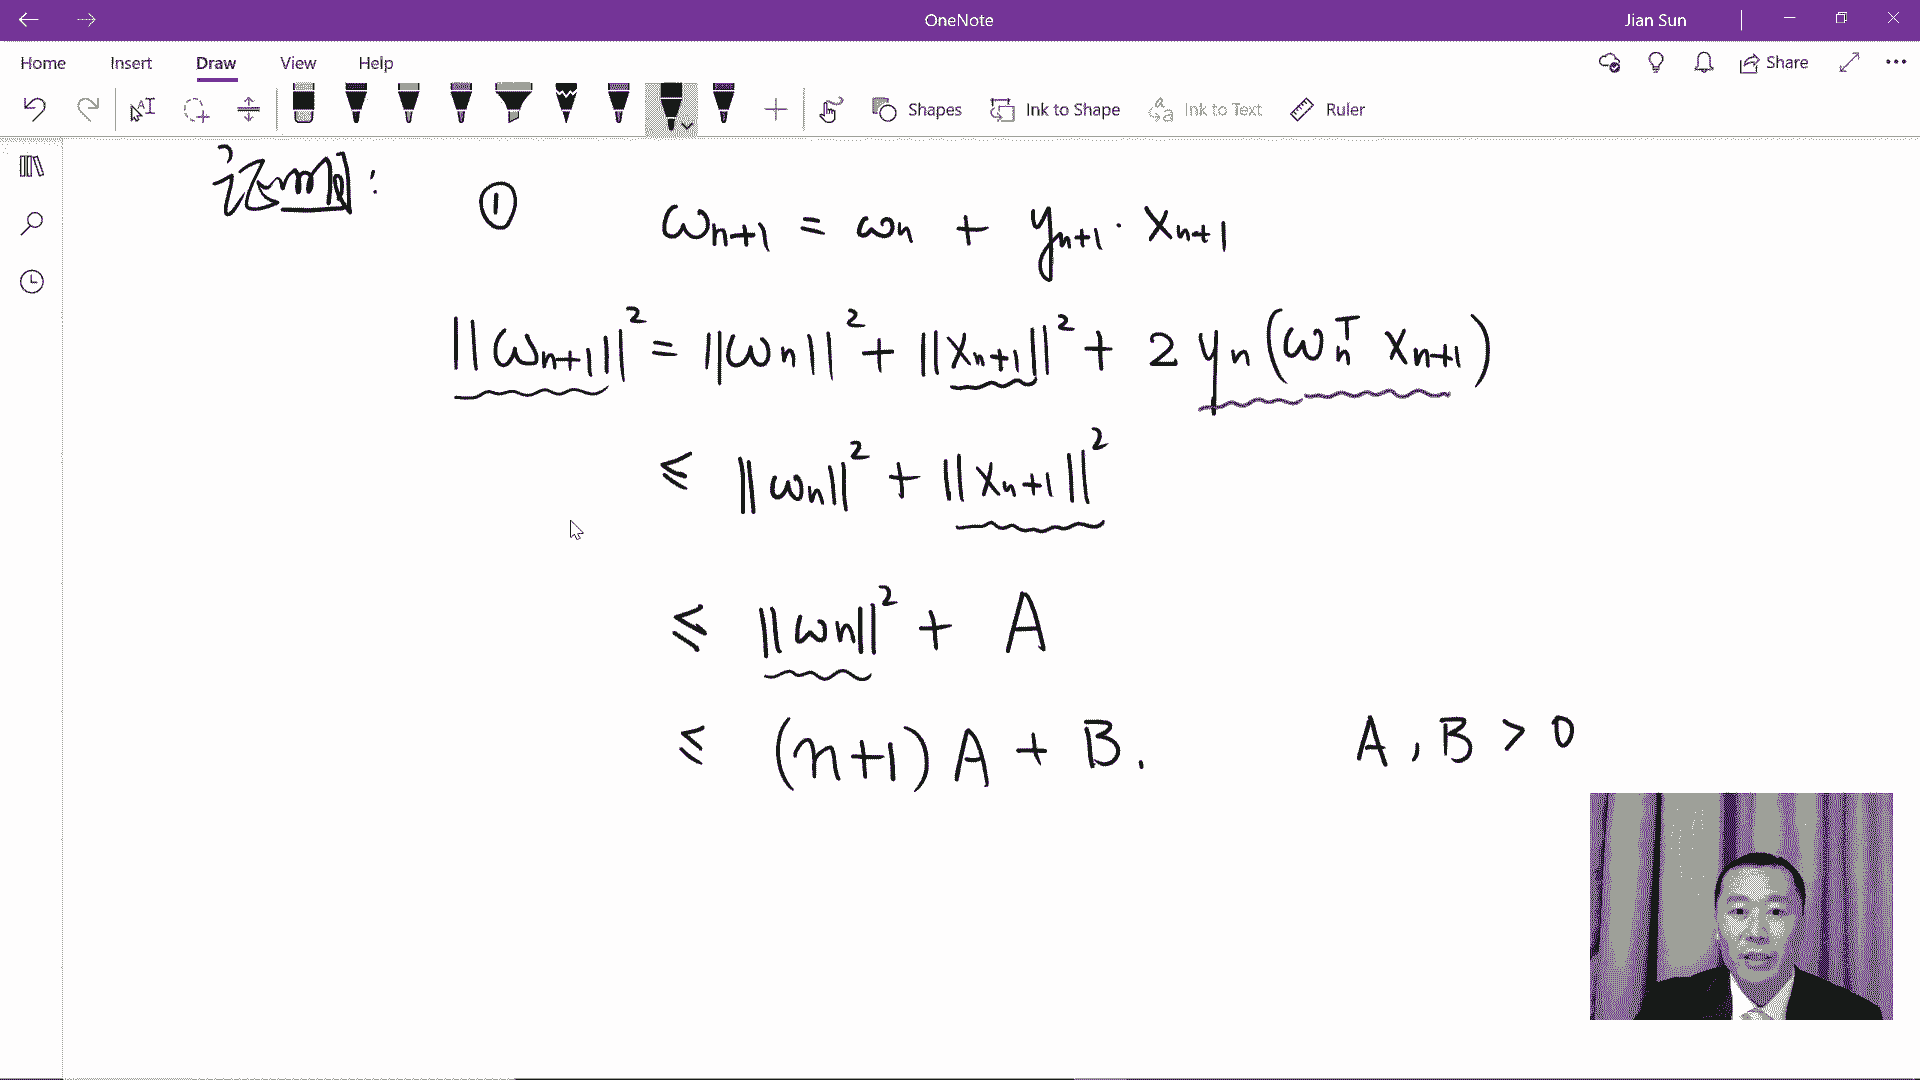 OneNote
Jian Sun
Home Insert Draw View Help
Share
Shapes Ink to Shape Ink to Text Ruler
证明: ① ωₙ₊₁ = ωₙ + yₙ₊₁ · xₙ₊₁
||ωₙ₊₁||² = ||ωₙ||² + ||xₙ₊₁||² + 2 yₙ (ωₙᵀ xₙ₊₁)
≤ ||ωₙ||² + ||xₙ₊₁||²
≤ ||ωₙ||² + A
≤ (n+1) A + B. A, B > 0